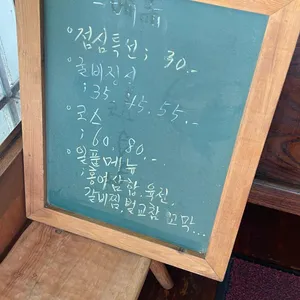 °점심특선; 30.-
°굴비정식
; 35. 45. 55.-
°코스
; 60. 80...
°일품메뉴
; 홍어삼합, 육전,
갈비찜, 벌교참꼬막...